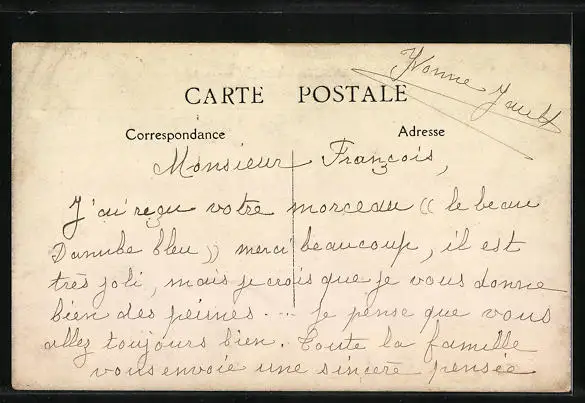 Yvonne
CARTE POSTALE
Correspondance
Adresse
Monsieur François,
J'ai reçu votre morceau (( le beau
Danube bleu )) merci beaucoup, il est
très joli, mais je crois que je vous donne
bien des peines ... je pense que vous
allez toujours bien. Toute la famille
vous envoie une sincère pensée